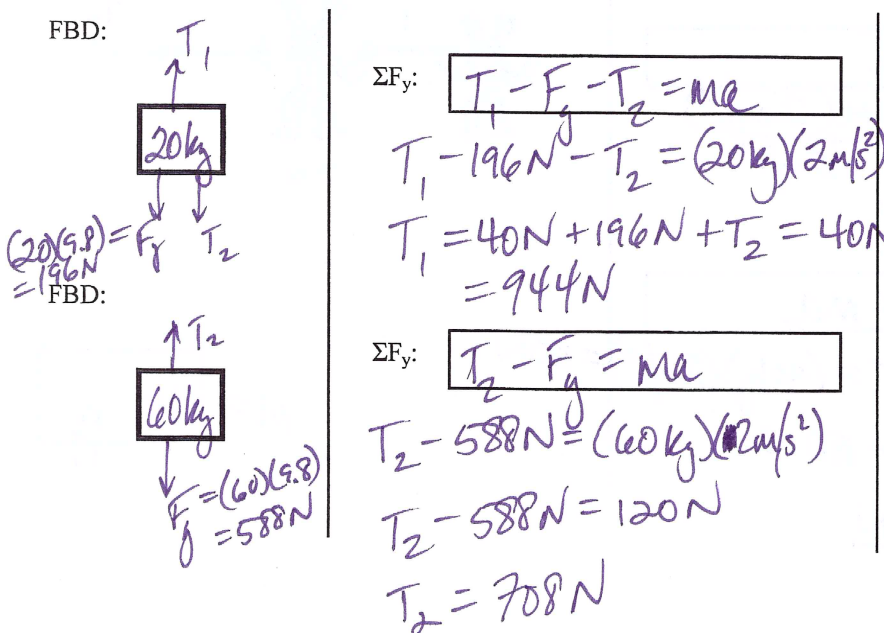 FBD:
T₁
20kg
(20)(9.8) = Fg T₂
= 196N
FBD:
T₂
60kg
Fg = (60)(9.8)
= 588N
ΣFy: T₁ - Fg - T₂ = ma
T₁ - 196N - T₂ = (20kg)(2m/s²)
T₁ = 40N + 196N + T₂ = 40N
= 944N
ΣFy: T₂ - Fg = ma
T₂ - 588N = (60kg)(2m/s²)
T₂ - 588N = 120N
T₂ = 708N